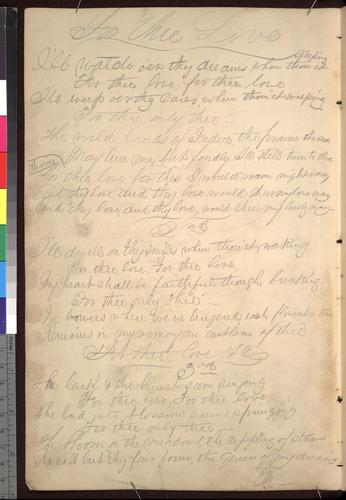 For Thee Love
sleeping
I'll watch over thy dreams when thou art
For thee love, for thee love
I'll weep oer thy cares, when thou'rt weeping
For thee only thee
The wild lands of Indies, the prairie the sea
May lure me, but fondly I'll still turn to thee
For thee love for thee I would roam night & day
And thy love, and thy love would cheer my lonely way
And thy love, and thy love, would cheer my lonely way
2nd
I'll dwell on thy smiles when thou'rt waking
For thee love, For thee love,
My heart shall be faithful though breaking
For thee only thee
The bowers where we've lingered each flower & tree
Remains in my memory an emblem of thee
For thee love &c
3rd
The lark & the linnet seem singing
For thee love, For thee love,
The bud into blossom seems springing
For thee only thee
The bloom on the meadows the rippling of streams
Recall but thy fair form, the Queen of my dreams